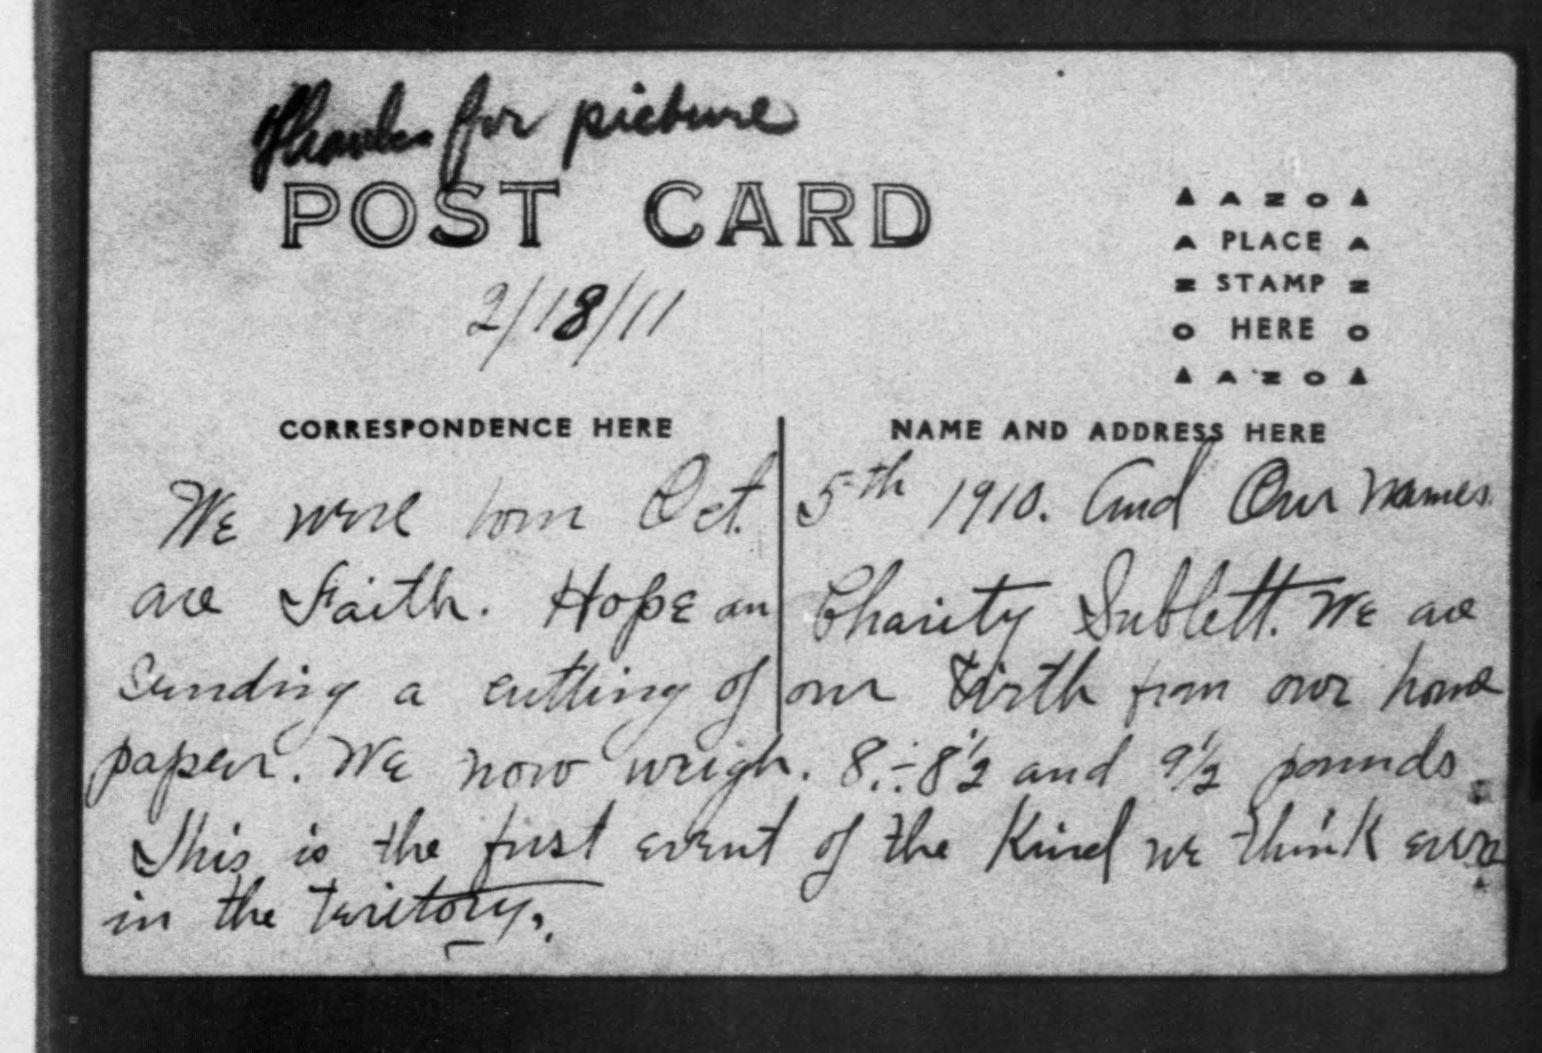 Thanks for picture
POST CARD
2/18/11
▲ A Z O ▲
A PLACE A
Z STAMP Z
O HERE O
▲ A Z O ▲
CORRESPONDENCE HERE
NAME AND ADDRESS HERE
We were born Oct. 5th 1910. And Our names
are Faith. Hope an Charity Sublett. We are
sending a cutting of our birth from our home
paper. We now weigh. 8.-8½ and 9½ pounds.
This is the first event of the Kind we think ever
in the teritory.